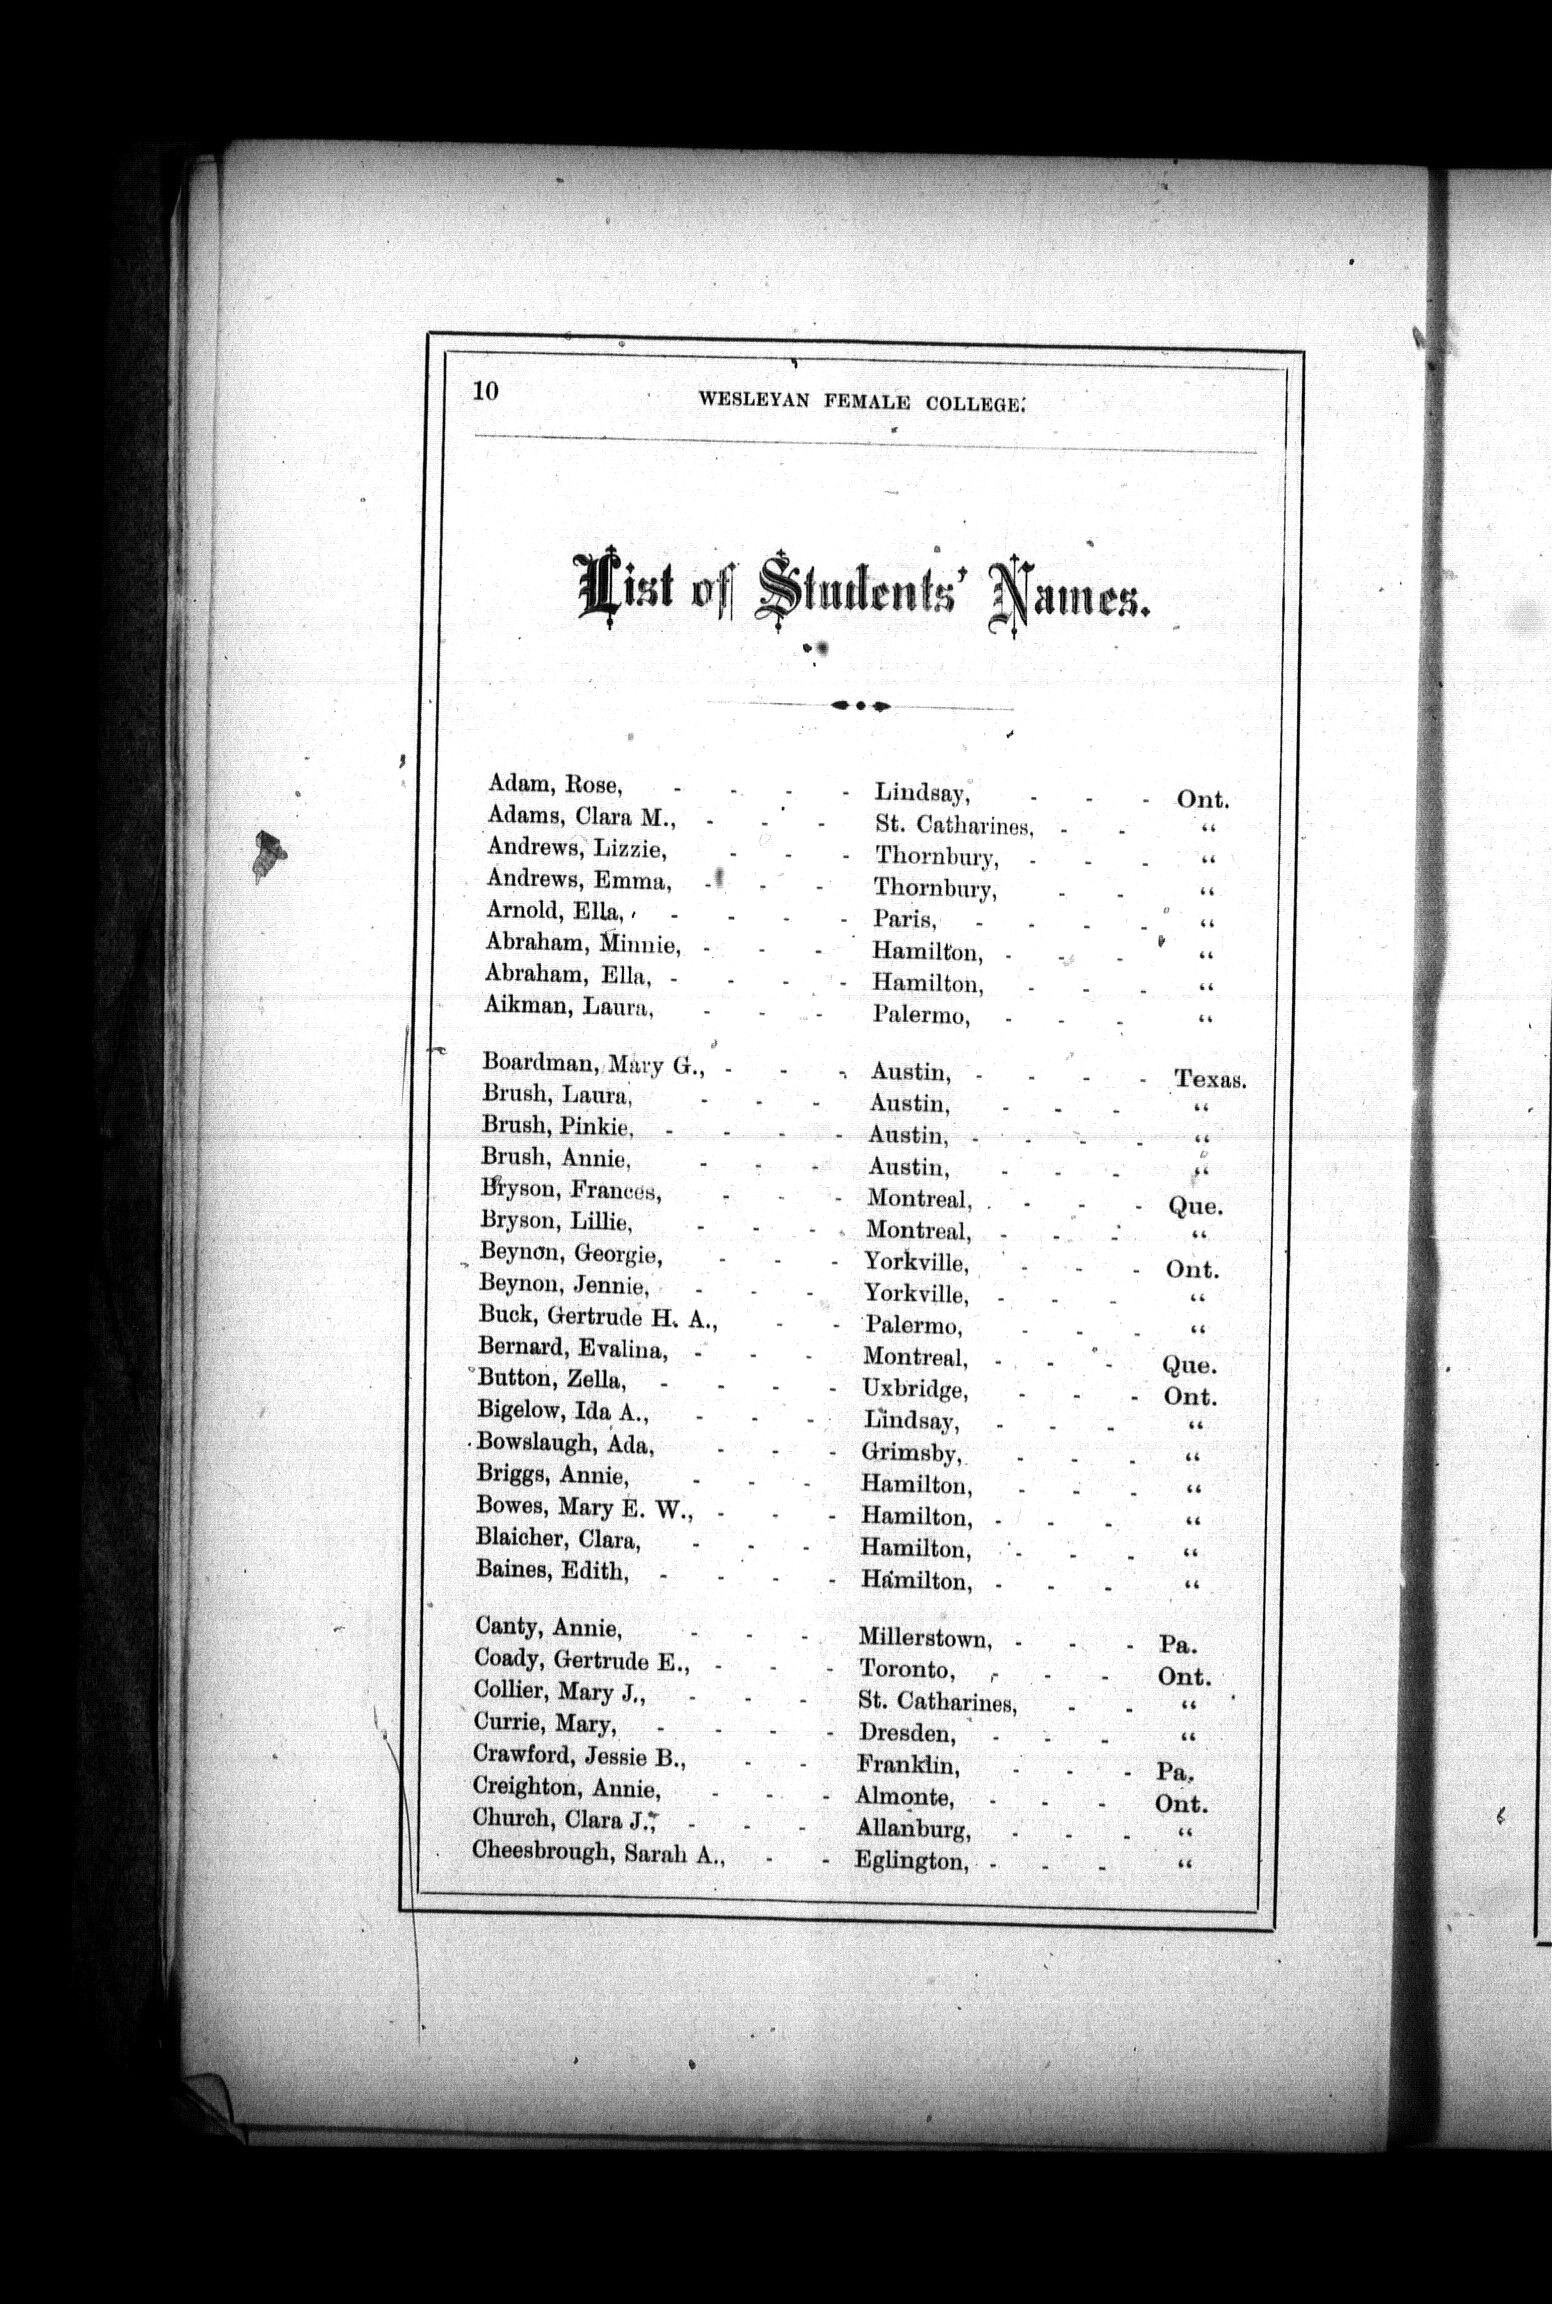 10 WESLEYAN FEMALE COLLEGE.
List of Students' Names.
Adam, Rose, - - - - Lindsay, - - - Ont.
Adams, Clara M., - - - St. Catharines, - - “
Andrews, Lizzie, - - - Thornbury, - - - “
Andrews, Emma, - - - Thornbury, - - “
Arnold, Ella, - - - - Paris, - - - - “
Abraham, Minnie, - - - Hamilton, - - - “
Abraham, Ella, - - - - Hamilton, - - - “
Aikman, Laura, - - - Palermo, - - - “
Boardman, Mary G., - - - Austin, - - - - Texas.
Brush, Laura, - - - Austin, - - - “
Brush, Pinkie, - - - - Austin, - - - - “
Brush, Annie, - - - Austin, - - - “
Bryson, Frances, - - - Montreal, - - - - Que.
Bryson, Lillie, - - - Montreal, - - - “
Beynon, Georgie, - - - Yorkville, - - - Ont.
Beynon, Jennie, - - - Yorkville, - - - “
Buck, Gertrude H. A., - - Palermo, - - - “
Bernard, Evalina, - - - Montreal, - - - Que.
Button, Zella, - - - - Uxbridge, - - - Ont.
Bigelow, Ida A., - - - Lindsay, - - - “
Bowslaugh, Ada, - - - Grimsby, - - - “
Briggs, Annie, - - - Hamilton, - - - “
Bowes, Mary E. W., - - - Hamilton, - - - “
Blaicher, Clara, - - - Hamilton, - - - “
Baines, Edith, - - - - Hamilton, - - - “
Canty, Annie, - - - Millerstown, - - - Pa.
Coady, Gertrude E., - - - Toronto, - - - Ont.
Collier, Mary J., - - - St. Catharines, - - “
Currie, Mary, - - - - Dresden, - - - “
Crawford, Jessie B., - - Franklin, - - - Pa.
Creighton, Annie, - - - Almonte, - - - Ont.
Church, Clara J., - - - Allanburg, - - - “
Cheesbrough, Sarah A., - - Eglington, - - - “